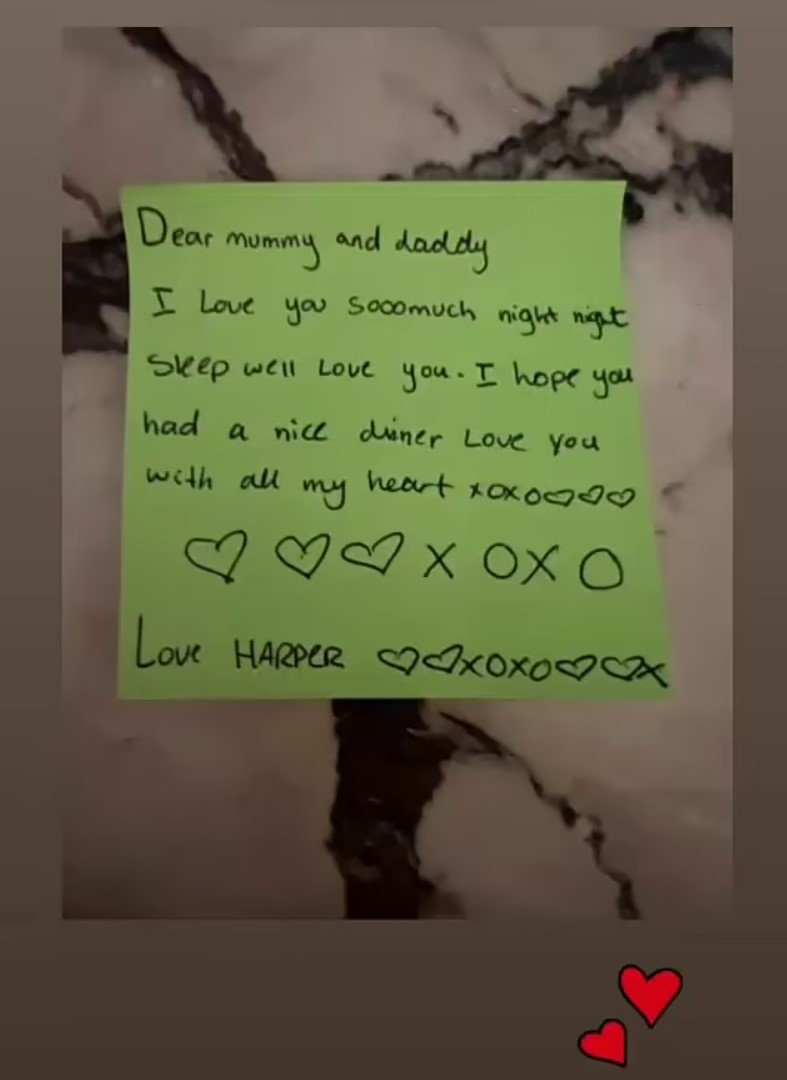 Dear mummy and daddy
I Love you sooomuch night night
Sleep well Love you. I hope you
had a nice diner Love you
with all my heart xoxo♡♡♡
♡ ♡ ♡ X O X O
Love HARPER ♡♡xoxo♡♡x